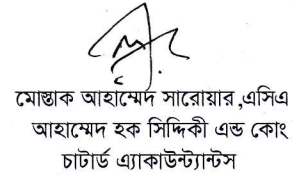 মোস্তাক আহাম্মেদ সারোয়ার,এসিএ
আহাম্মেদ হক সিদ্দিকী এন্ড কোং
চাটার্ড এ্যাকাউন্ট্যান্টস